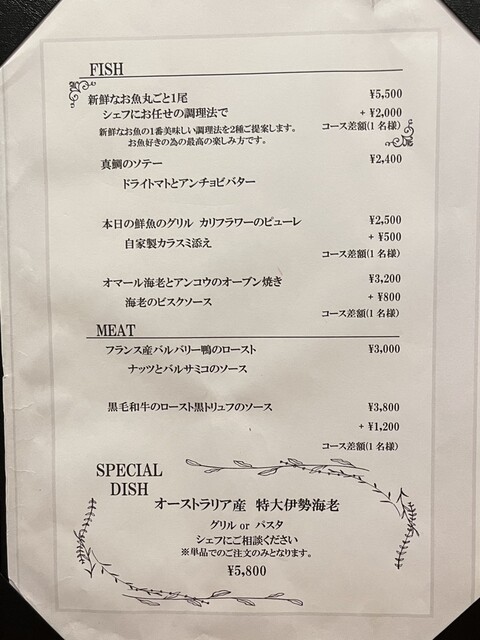 FISH
新鮮なお魚丸ごと1尾 ¥5,500
シェフにお任せの調理法で + ¥2,000
新鮮なお魚の1番美味しい調理法を2種ご提案します。 コース差額(1名様)
お魚好きの為の最高の楽しみ方です。
真鯛のソテー ¥2,400
ドライトマトとアンチョビバター
本日の鮮魚のグリル カリフラワーのピューレ ¥2,500
自家製カラスミ添え + ¥500
コース差額(1名様)
オマール海老とアンコウのオーブン焼き ¥3,200
海老のビスクソース + ¥800
コース差額(1名様)
MEAT
フランス産バルバリー鴨のロースト ¥3,000
ナッツとバルサミコのソース
黒毛和牛のロースト黒トリュフのソース ¥3,800
+ ¥1,200
コース差額(1名様)
SPECIAL
DISH
オーストラリア産 特大伊勢海老
グリル or パスタ
シェフにご相談ください
※単品でのご注文のみとなります。
¥5,800